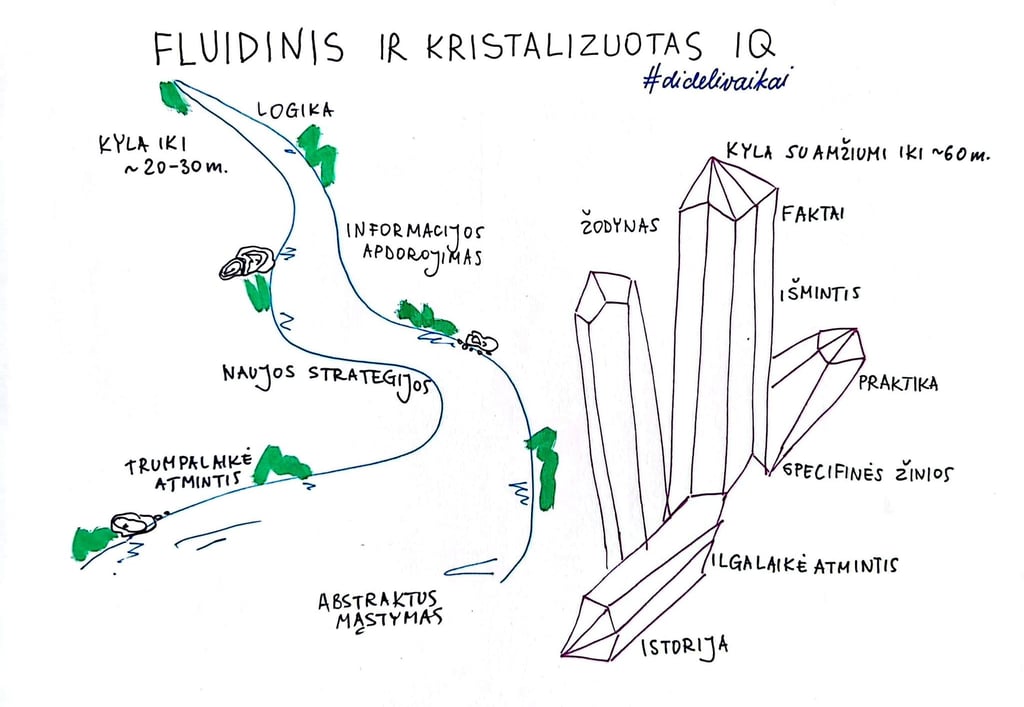 FLUIDINIS IR KRISTALIZUOTAS IQ
#didelivaikai
LOGIKA
KYLA IKI
~20-30 m.
INFORMACIJOS
APDOROJIMAS
NAUJOS STRATEGIJOS
TRUMPALAIKĖ
ATMINTIS
ABSTRAKTUS
MĄSTYMAS
KYLA SU AMŽIUMI IKI ~60 m.
ŽODYNAS
FAKTAI
IŠMINTIS
PRAKTIKA
SPECIFINĖS ŽINIOS
ILGALAIKĖ ATMINTIS
ISTORIJA